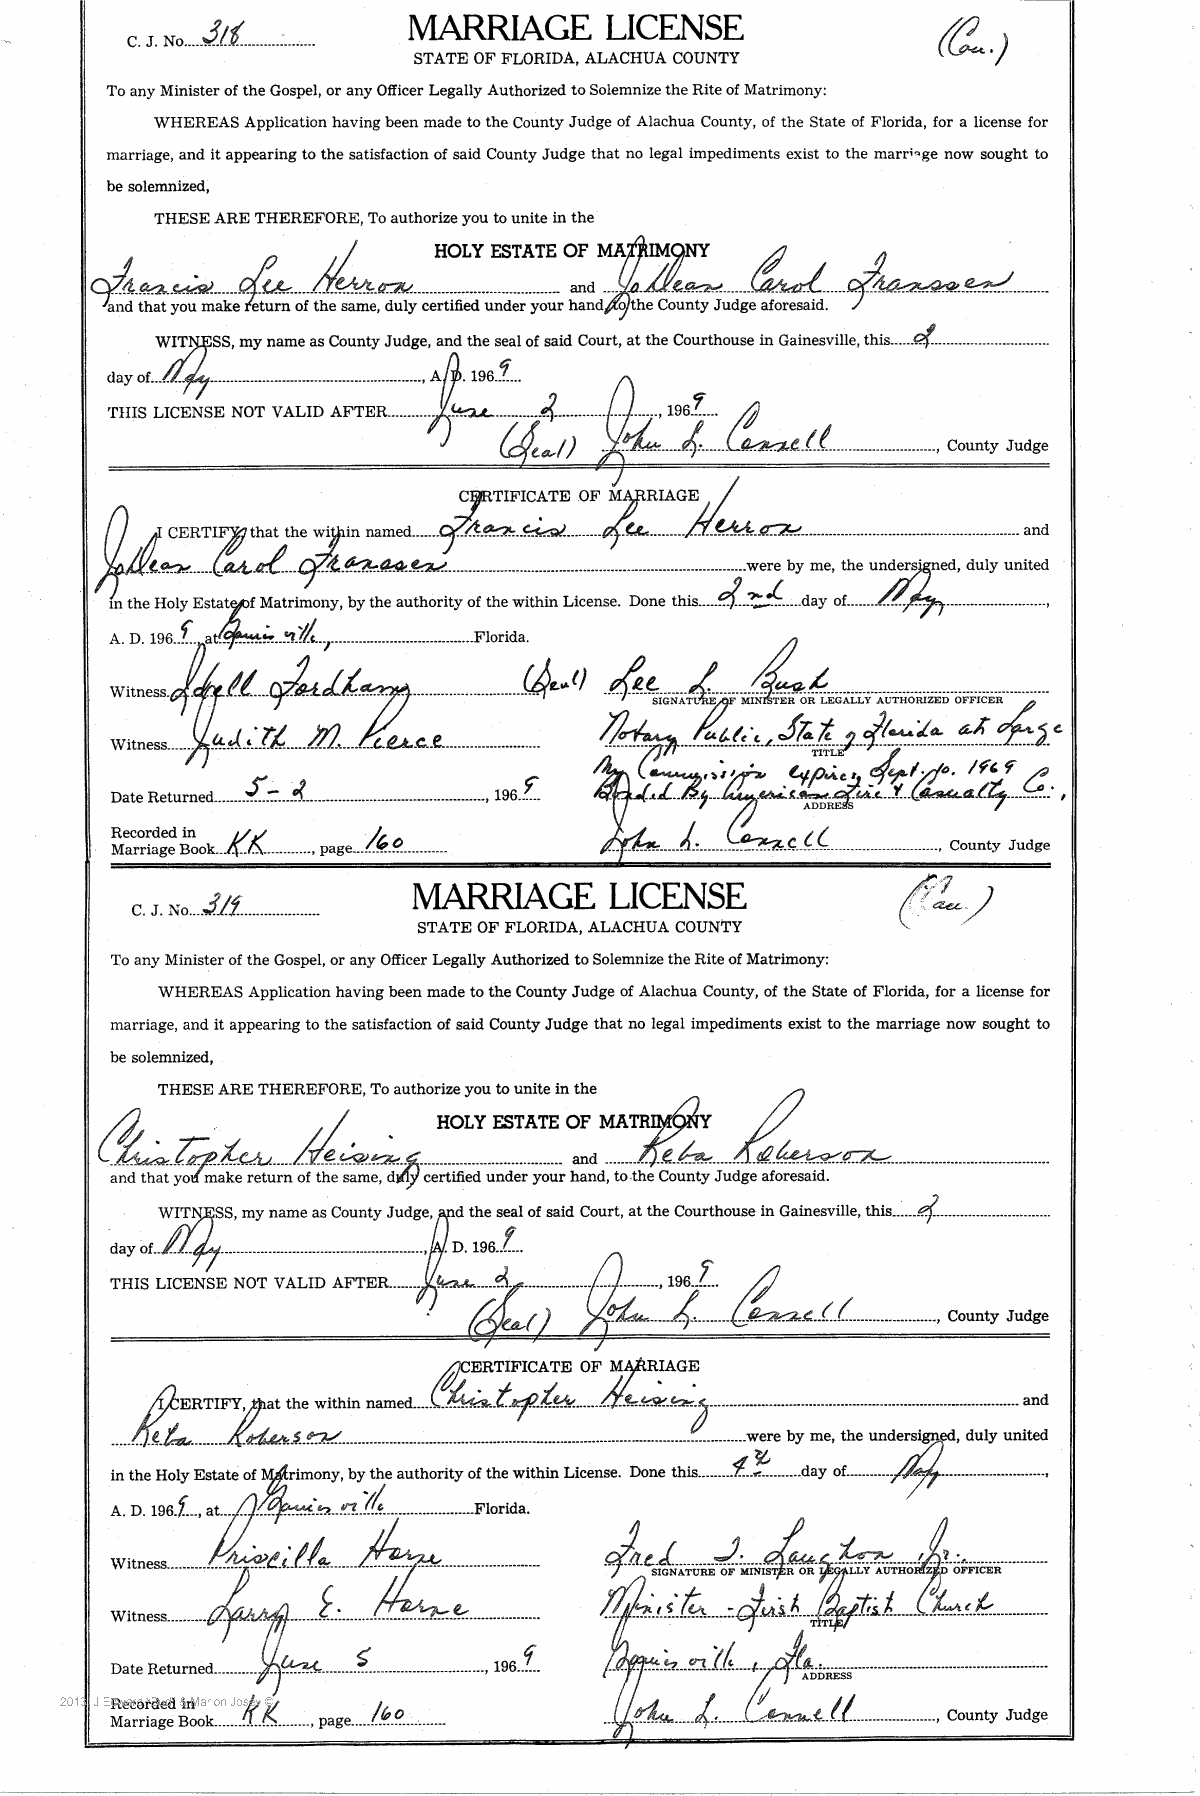 C. J. No. 318 MARRIAGE LICENSE (Cau.)
STATE OF FLORIDA, ALACHUA COUNTY
To any Minister of the Gospel, or any Officer Legally Authorized to Solemnize the Rite of Matrimony:
WHEREAS Application having been made to the County Judge of Alachua County, of the State of Florida, for a license for
marriage, and it appearing to the satisfaction of said County Judge that no legal impediments exist to the marriage now sought to
be solemnized,
THESE ARE THEREFORE, To authorize you to unite in the
HOLY ESTATE OF MATRIMONY
Francis Lee Herron and JoDean Carol Franssen
and that you make return of the same, duly certified under your hand, to the County Judge aforesaid.
WITNESS, my name as County Judge, and the seal of said Court, at the Courthouse in Gainesville, this 2
day of May, A. D. 1969
THIS LICENSE NOT VALID AFTER June 2, 1969
(Seal) John L. Connell, County Judge
CERTIFICATE OF MARRIAGE
I CERTIFY, that the within named Francis Lee Herron and
JoDean Carol Franssen were by me, the undersigned, duly united
in the Holy Estate of Matrimony, by the authority of the within License. Done this 2nd day of May,
A. D. 1969, at Gainesville, Florida.
Witness Fordham (Seal) Lee L. Bush
SIGNATURE OF MINISTER OR LEGALLY AUTHORIZED OFFICER
Witness Judith M. Pierce Notary Public, State of Florida at Large
TITLE
My Commission expires Sept. 10. 1969
Date Returned 5-2, 1969 Bonded By American Fire & Casualty Co.,
ADDRESS
Recorded in
Marriage Book KK, page 160 John L. Connell, County Judge
C. J. No. 319 MARRIAGE LICENSE (Cau.)
STATE OF FLORIDA, ALACHUA COUNTY
To any Minister of the Gospel, or any Officer Legally Authorized to Solemnize the Rite of Matrimony:
WHEREAS Application having been made to the County Judge of Alachua County, of the State of Florida, for a license for
marriage, and it appearing to the satisfaction of said County Judge that no legal impediments exist to the marriage now sought to
be solemnized,
THESE ARE THEREFORE, To authorize you to unite in the
HOLY ESTATE OF MATRIMONY
Christopher Heising and Reba Roberson
and that you make return of the same, duly certified under your hand, to the County Judge aforesaid.
WITNESS, my name as County Judge, and the seal of said Court, at the Courthouse in Gainesville, this 2
day of May, A. D. 1969
THIS LICENSE NOT VALID AFTER June 2, 1969
(Seal) John L. Connell, County Judge
CERTIFICATE OF MARRIAGE
I CERTIFY, that the within named Christopher Heising and
Reba Roberson were by me, the undersigned, duly united
in the Holy Estate of Matrimony, by the authority of the within License. Done this 4th day of May,
A. D. 1969, at Gainesville Florida.
Witness Priscilla Horne Fred T. Laughon, Jr.
SIGNATURE OF MINISTER OR LEGALLY AUTHORIZED OFFICER
Witness Larry E. Horne Minister - First Baptist Church
TITLE
Date Returned June 5, 1969 Gainesville, Fla.
ADDRESS
Recorded in
Marriage Book KK, page 160 John L. Connell, County Judge